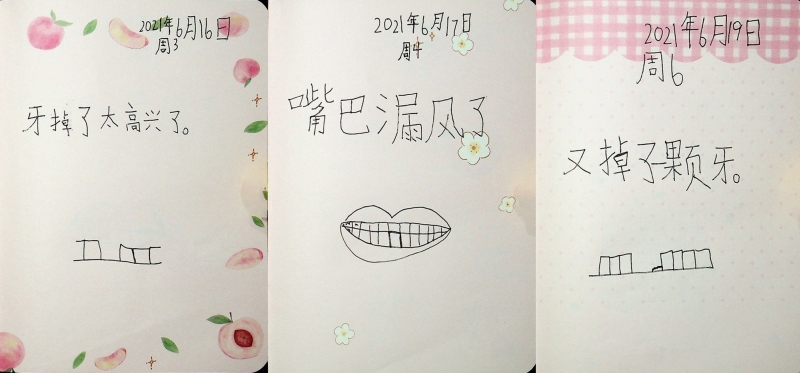 2021年6月16日
周3
牙掉了太高兴了。
2021年6月17日
周4
嘴巴漏风了
2021年6月19日
周6
又掉了颗牙。